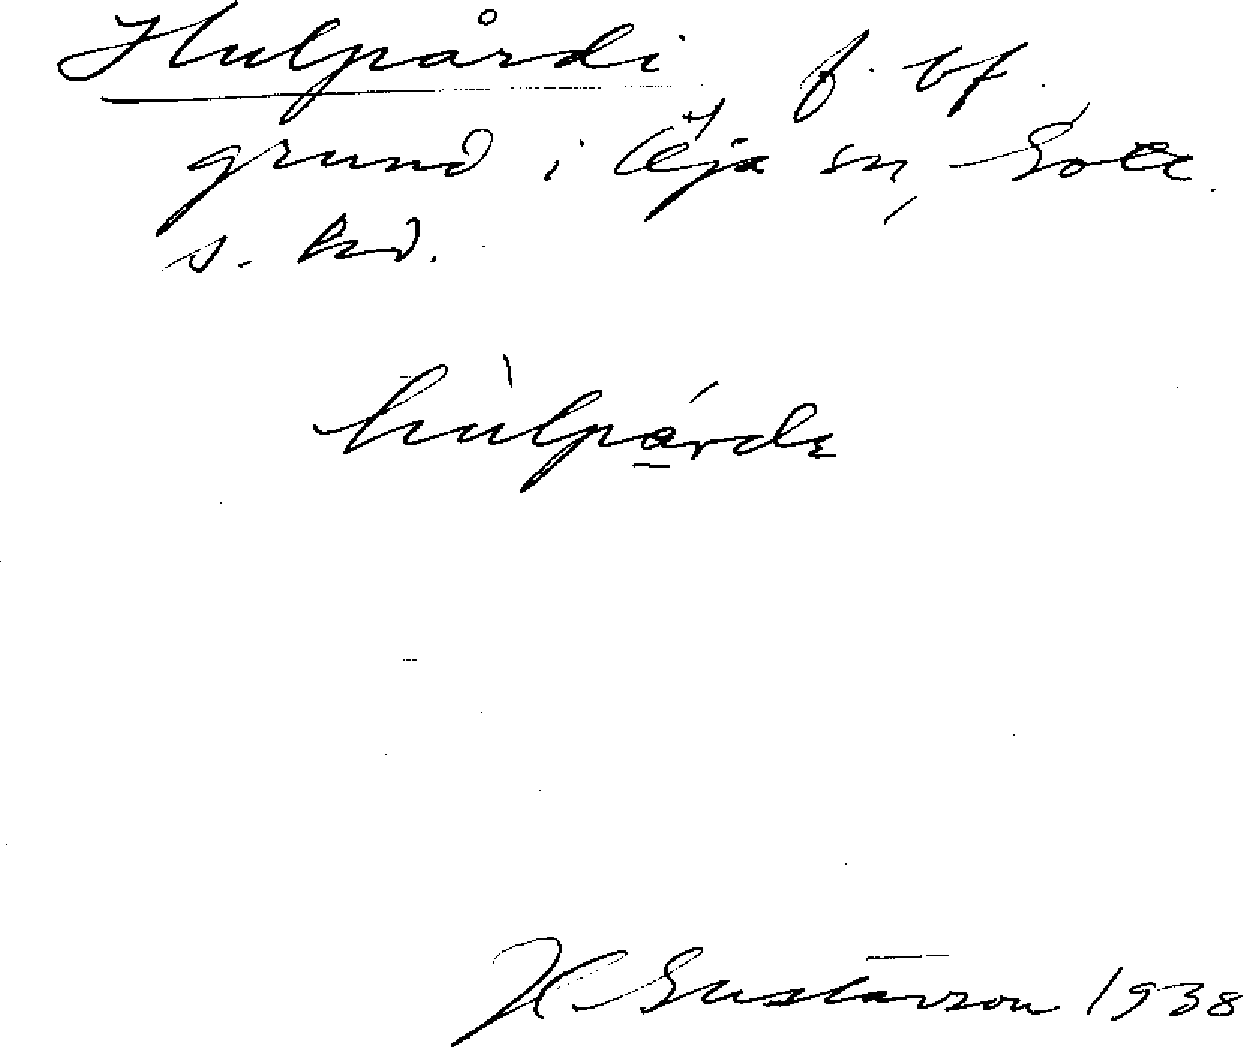 Hulpårdi f. bf.
grund i Öja sn, Gotl.
s. hd.
hùlpá̱rdɛ
H Gustavson 1938